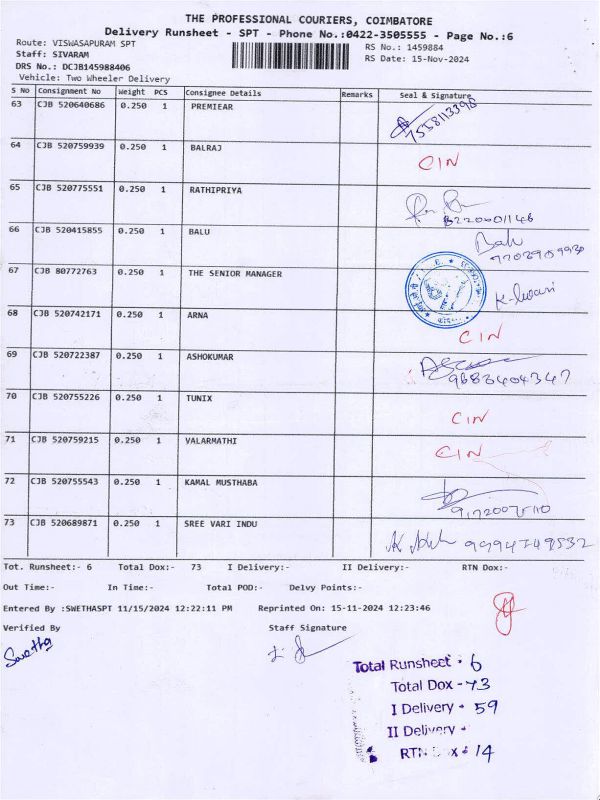 THE PROFESSIONAL COURIERS, COIMBATORE
Delivery Runsheet - SPT - Phone No.:0422-3505555 - Page No.:6
Route: VISWASAPURAM SPT RS No.: 1459884
Staff: SIVARAM RS Date: 15-Nov-2024
DRS No.: DCJB145988406
Vehicle: Two Wheeler Delivery
S No Consignment No Weight PCS Consignee Details Remarks Seal & Signature
63 CJB 520640686 0.250 1 PREMIEAR 7558113398
64 CJB 520759939 0.250 1 BALRAJ CIN
65 CJB 520775551 0.250 1 RATHIPRIYA
66 CJB 520415855 0.250 1 BALU Balu
67 CJB 80772763 0.250 1 THE SENIOR MANAGER
68 CJB 520742171 0.250 1 ARNA CIN
69 CJB 520722387 0.250 1 ASHOKUMAR 9683404347
70 CJB 520755226 0.250 1 TUNIX CIN
71 CJB 520759215 0.250 1 VALARMATHI CIN
72 CJB 520755543 0.250 1 KAMAL MUSTHABA
73 CJB 520689871 0.250 1 SREE VARI INDU 9994749532
Tot. Runsheet:- 6 Total Dox:- 73 I Delivery:- II Delivery:- RTN Dox:-
Out Time:- In Time:- Total POD:- Delvy Points:-
Entered By :SWETHASPT 11/15/2024 12:22:11 PM Reprinted On: 15-11-2024 12:23:46
Verified By Staff Signature
Swetha
Total Runsheet - 6
Total Dox - 73
I Delivery - 59
II Delivery -
RTN Dox - 14